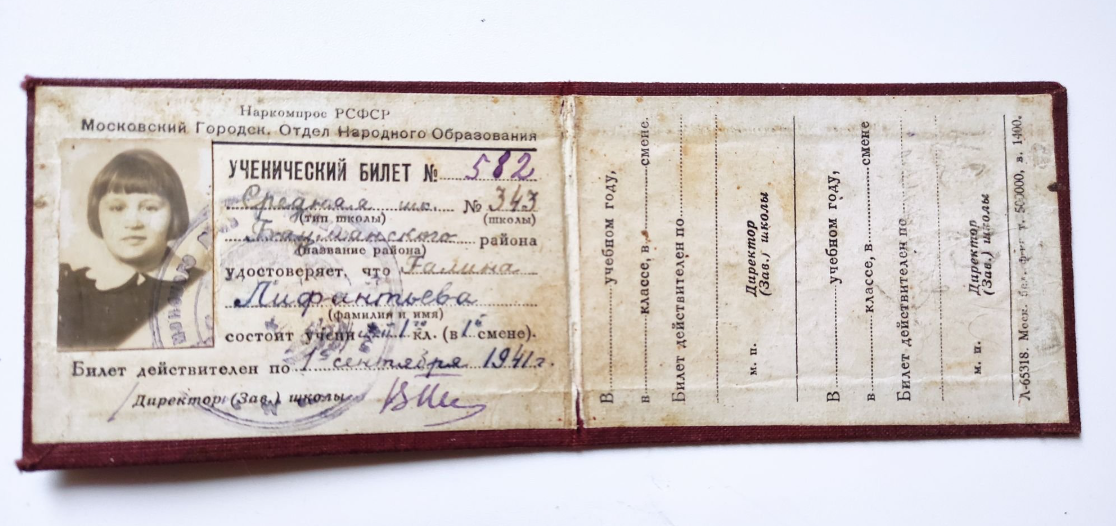 Наркомпрос РСФСР
Московский Городск. Отдел Народного Образования
УЧЕНИЧЕСКИЙ БИЛЕТ № 582
Средняя шк. № 343
(тип школы) (школы)
Бауманского района
(название района)
удостоверяет, что Галина
Лифантьева
(фамилия и имя)
состоит ученицей 1го кл. (в 1й смене).
Билет действителен по 1 сентября 1941 г.
Директор (Зав.) школы
В учебном году,
в классе, в смене.
Билет действителен по
м. п. Директор
(Зав.) школы
В учебном году,
в классе, в смене
Билет действителен по
м. п. Директор
(Зав.) школы
Л-65318. Моск. т. 500000, з. 1400.